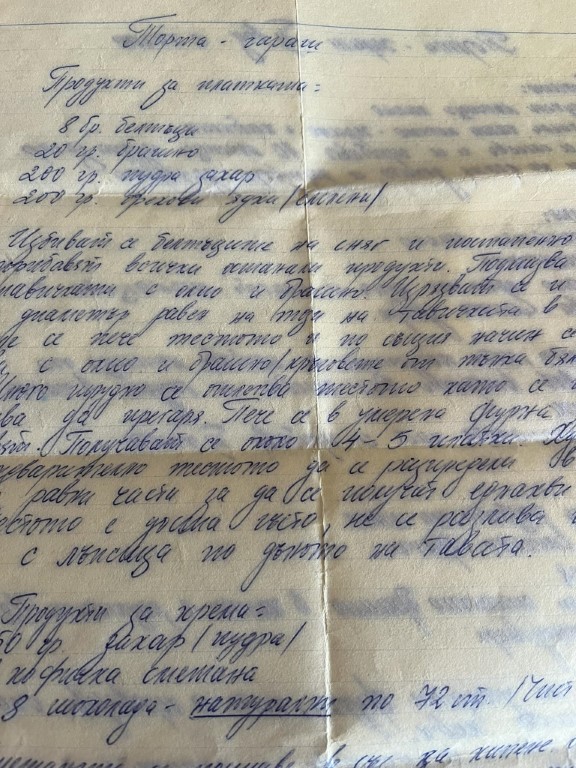 Торта - гараш
Продукти за платката:
8 бр. белтъци
20 гр. брашно
200 гр. пудра захар
200 гр. орехови ядки /смлени/
Избиват се белтъците на сняг и постепенно
всички останали продукти. Подмазва
тавичката с олио и брашно. Изрязват се и
диаметър равен на този на тавичката в
се пече тестото и по същия начин се
с олио и брашно /кръговете от тънка бял
трудно се отлепва тестото като се
да прегаря. Пече се в умерена фурна
Получават се около 4-5 платки.
тестото да се разпредели в
равни части за да се получат еднакви
е доста гъсто, не се разлива
с лъжица по дъното на тавата.
Продукти за крема:
50 гр. захар /пудра/
кофичка сметана
8 шоколада - натурални по 72 ст. /чист